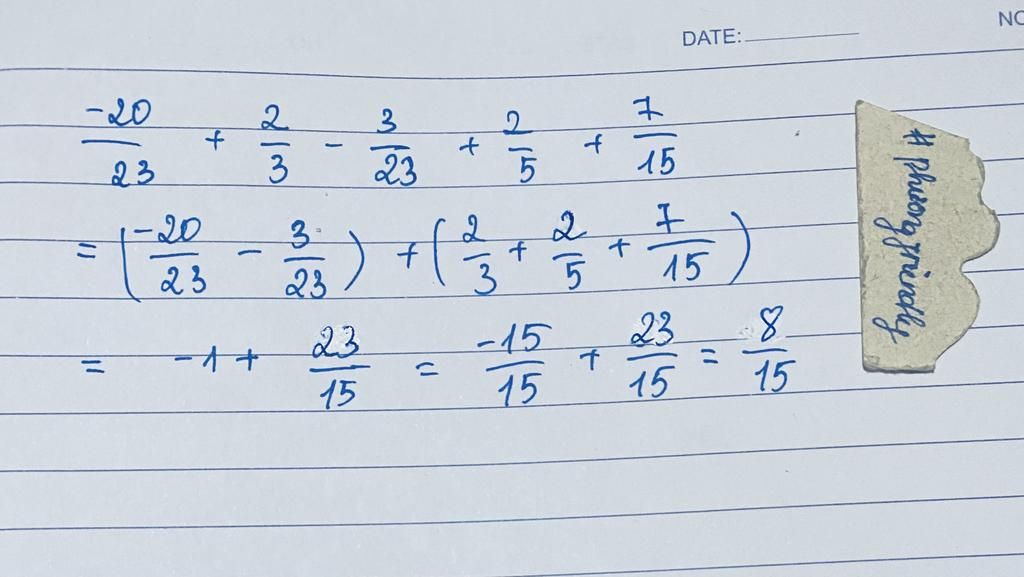 DATE:
NO
-20/23 + 2/3 - 3/23 + 2/5 + 7/15
= (-20/23 - 3/23) + (2/3 + 2/5 + 7/15)
= -1 + 23/15 = -15/15 + 23/15 = 8/15
# phuongfriendly